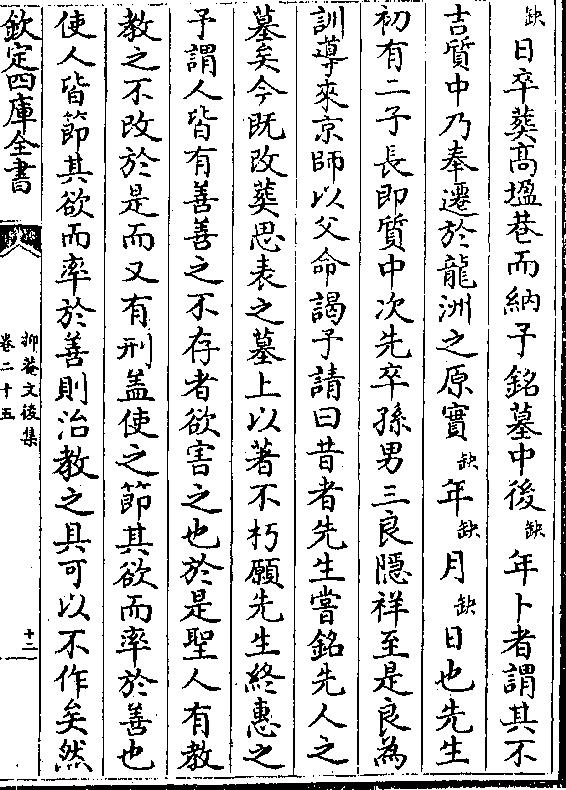 缺日卒葬髙塭巷而納予銘墓中後缺年卜者謂其不
吉質中乃奉遷於龍洲之原實缺年缺月缺日也先生
初有二子長即質中次先卒孫男三良隱祥至是良為
訓導來京師以父命謁予請曰昔者先生嘗銘先人之
墓矣今既改葬思表之墓上以著不朽願先生終惠之
予謂人皆有善善之不存者欲害之也於是聖人有教
教之不改於是而又有刑盖使之節其欲而率於善也
使人皆節其欲而率於善則治教之具可以不作矣然
欽定四庫全書
抑菴文後集
卷二十五
十二